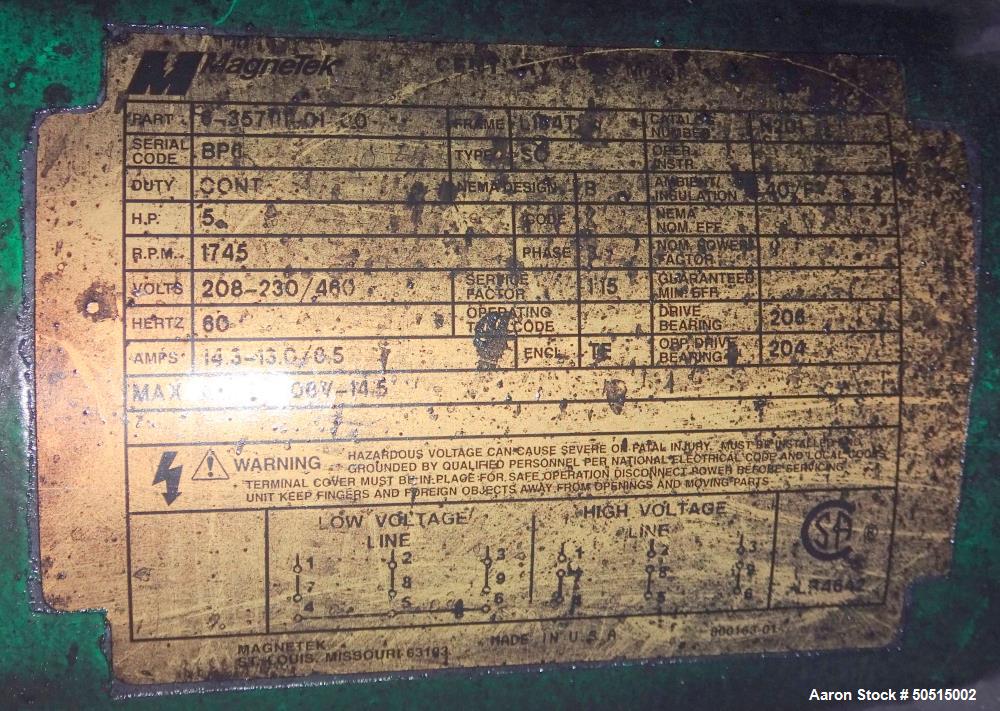 MagneTek
PART FRAME CATALOG NUMBER
SERIAL CODE BP6 TYPE SC OPER. INSTR.
DUTY CONT NEMA DESIGN B AMBIENT/ INSULATION 40/
H.P. 5 CODE NEMA NOM. EFF.
R.P.M. 1745 PHASE NOM. POWER FACTOR
VOLTS 208-230/460 SERVICE FACTOR 1.15 GUARANTEED MIN. EFF.
HERTZ 60 OPERATING CODE DRIVE BEARING 206
AMPS 14.3-13.0/6.5 ENCL. TE OPP. DRIVE BEARING 204
MAX 08V-14.5
WARNING
HAZARDOUS VOLTAGE CAN CAUSE SEVERE OR FATAL INJURY. MUST BE INSTALLED AND
GROUNDED BY QUALIFIED PERSONNEL PER NATIONAL ELECTRICAL CODE AND LOCAL CODES
TERMINAL COVER MUST BE IN PLACE FOR SAFE OPERATION DISCONNECT POWER BEFORE SERVICING
UNIT KEEP FINGERS AND FOREIGN OBJECTS AWAY FROM OPENINGS AND MOVING PARTS
LOW VOLTAGE HIGH VOLTAGE
LINE LINE
1 2 3 1 2 3
7 8 9 7 8 9
4 5 6 4 5 6
CSA ®
LR4642
MAGNETEK MADE IN U.S.A 900163-01
ST. LOUIS, MISSOURI 63103
Aaron Stock # 50515002